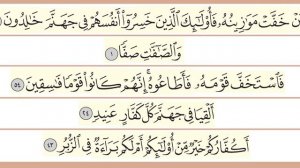 نْ خَفَّتْ مَوَٰزِينُهُۥ فَأُو۟لَـٰٓئِكَ ٱلَّذِينَ خَسِرُوٓا۟ أَنفُسَهُمْ فِى جَهَنَّمَ خَـٰلِدُونَ
وَٱلصَّـٰٓفَّـٰتِ صَفًّا ١
فَٱسْتَخَفَّ قَوْمَهُۥ فَأَطَاعُوهُ ۚ إِنَّهُمْ كَانُوا۟ قَوْمًا فَـٰسِقِينَ ٥٤
أَلْقِيَا فِى جَهَنَّمَ كُلَّ كَفَّارٍ عَنِيدٍ ٢٤
أَكُفَّارُكُمْ خَيْرٌ مِّنْ أُو۟لَـٰٓئِكُمْ أَمْ لَكُم بَرَآءَةٌ فِى ٱلزُّبُرِ ٤٣